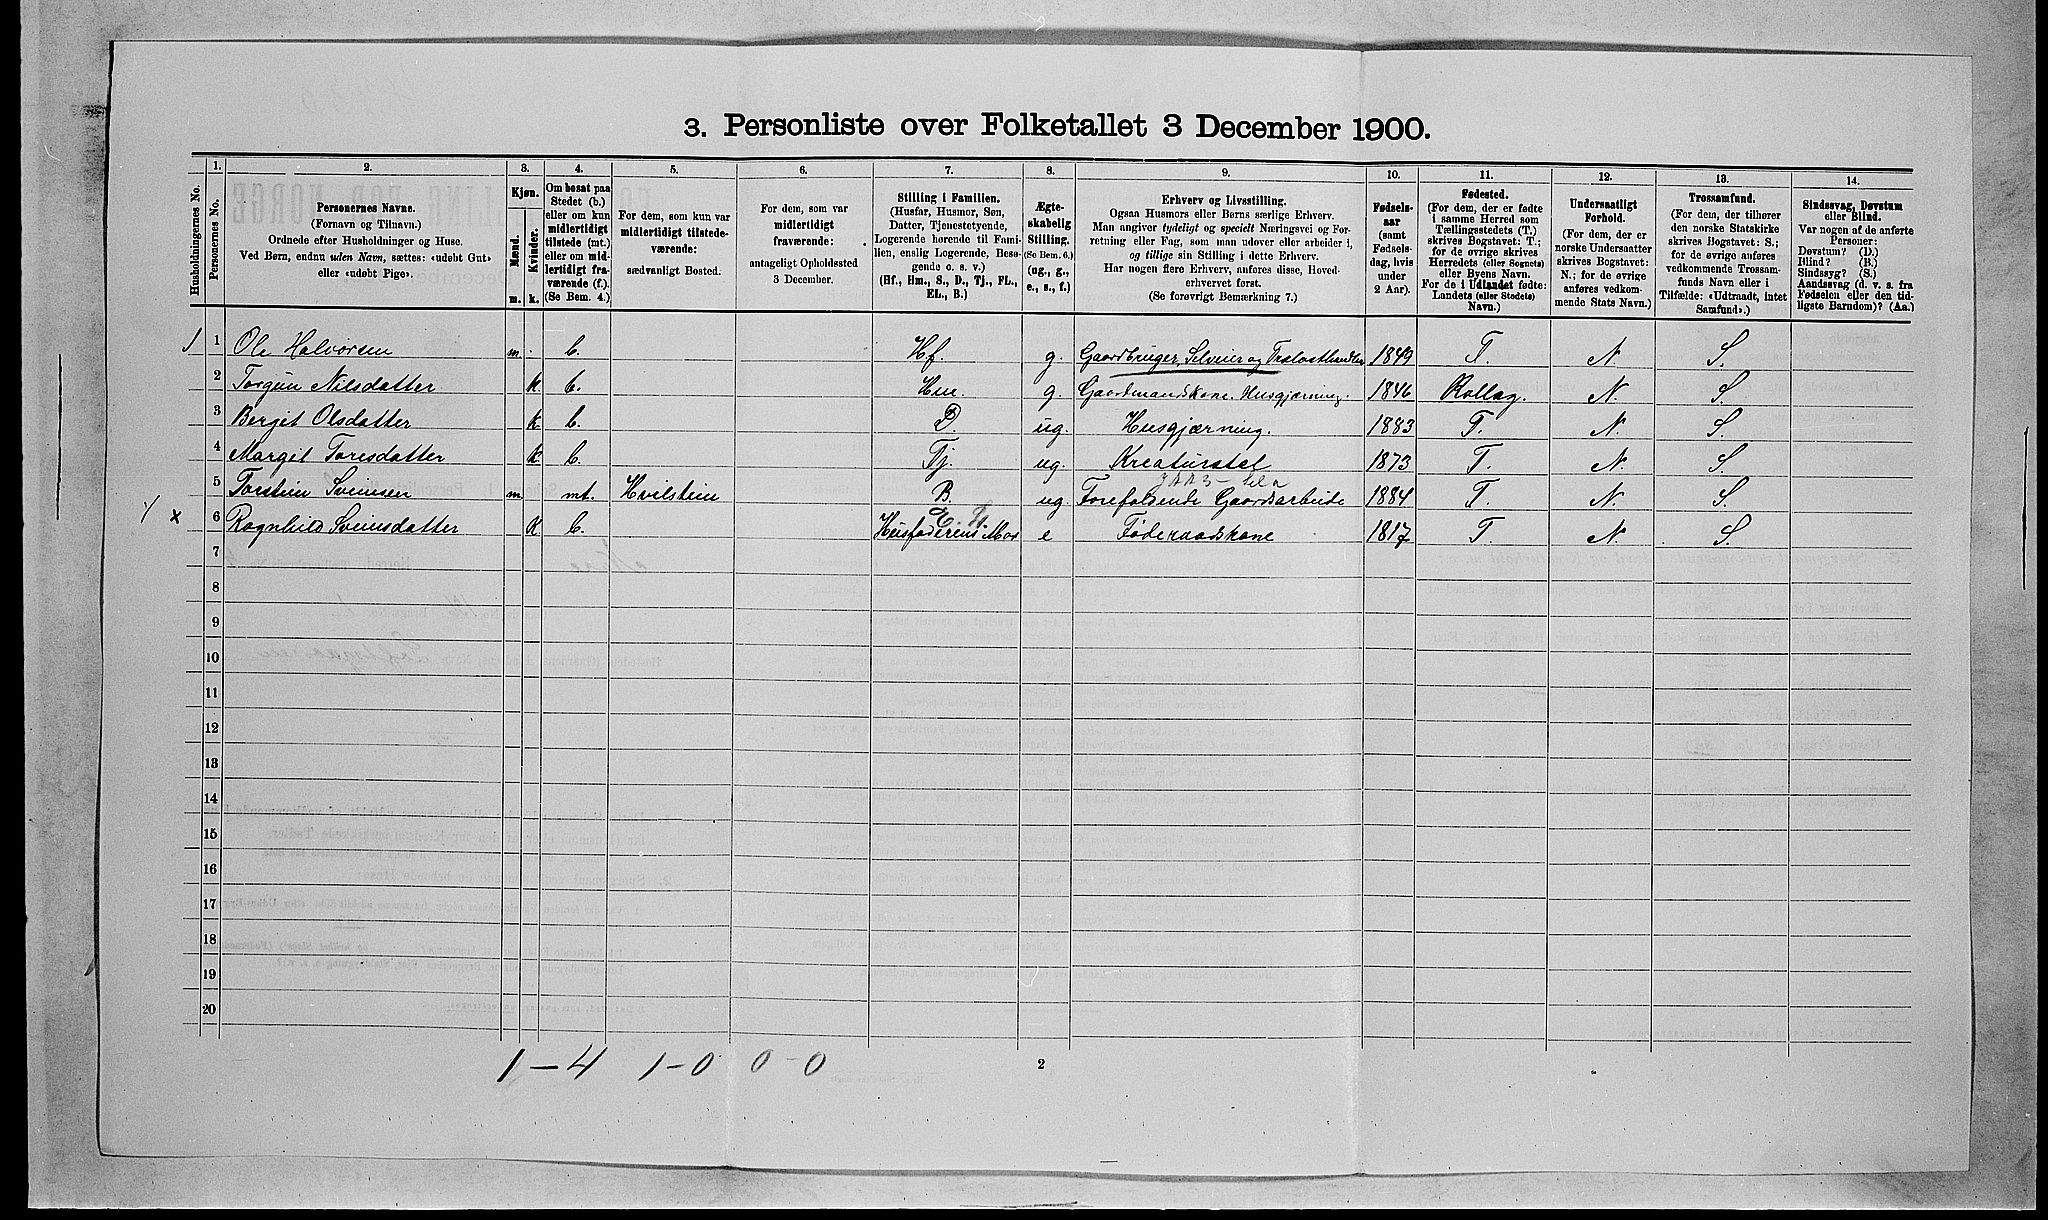 3. Personliste over Folketallet 3 December 1900.
Husholdningernes No.
1.
Personernes No.
2.
Personernes Navne.
(Fornavn og Tilnavn.)
Ordnede efter Husholdninger og Huse.
Ved Børn, endnu uden Navn, sættes: «udøbt Gut»
eller «udøbt Pige».
3.
Kjøn.
Mænd.
Kvinder.
m.
k.
4.
Om bosat paa
Stedet (b.)
eller om kun
midlertidigt
tilstede (mt.)
eller om mid-
lertidigt fra-
værende (f.).
(Se Bem. 4.)
5.
For dem, som kun var
midlertidigt tilstede-
værende:
sædvanligt Bosted.
6.
For dem, som var
midlertidigt
fraværende:
antageligt Opholdssted
3 December.
7.
Stilling i Familien.
(Husfar, Husmor, Søn,
Datter, Tjenestetyende,
Logerende hørende til Fami-
lien, enslig Logerende, Besø-
gende o. s. v.)
(Hf., Hm., S., D., Tj., FL.,
EL., B.)
8.
Ægte-
skabelig
Stilling.
(Se Bem. 6.)
(ug., g.,
e., s., f.)
9.
Erhverv og Livsstilling.
Ogsaa Husmors eller Børns særlige Erhverv.
Man angiver tydeligt og specielt Næringsvei og For-
retning eller Fag, som man udøver eller arbeider i,
og tillige sin Stilling i dette Erhverv.
Har nogen flere Erhverv, anføres disse, Hoved-
erhvervet først.
(Se forøvrigt Bemærkning 7.)
10.
Fødsels-
aar
(samt
Fødsels-
dag, hvis
under
2 Aar).
11.
Fødested.
(For dem, der er fødte
i samme Herred som
Tællingsstedets (T.)
skrives Bogstavet: T.;
for de øvrige skrives
Herredets (eller Sognets)
eller Byens Navn.
For de i Udlandet fødte:
Landets (eller Stedets)
Navn.)
12.
Undersaatligt
Forhold.
(For dem, der er
norske Undersaatter
skrives Bogstavet:
N.; for de øvrige
anføres vedkom-
mende Stats Navn.)
13.
Trossamfund.
(For dem, der tilhører
den norske Statskirke
skrives Bogstavet: S.;
for de øvrige anføres
vedkommende Trossam-
funds Navn eller i
Tilfælde: «Udtraadt, intet
Samfund».)
14.
Sindssvag, Døvstum
eller Blind.
Var nogen af de anførte
Personer:
Døvstum? (D.)
Blind? (B.)
Sindssyg? (S.)
Aandssvag (d. v. s. fra
Fødselen eller den tid-
ligste Barndom)? (Aa.)
1 1 Ole Halvorsen m. b. Hf. g. Gaardbruger, Selveier og Trælasthandler 1849 T. N. S.
2 Torgun Nilsdatter k b. Hm. g. Gaardmandskone. Husgjærning. 1846 Rollag. N. S.
3 Bergit Olsdatter k b. D. ug. Husgjærning. 1883 T. N. S.
4 Margit Toresdatter k. b. Tj. ug. Kreaturstel 1873 T. N. S.
5 Torstein Sveinsen m mt. Hvilstein B. ug Forefaldende Gaardsarbeide 1884 T. N. S.
x 6 Ragnhild Sveinsdatter k. b. Husfaderens Mor e Føderaadskone 1817 T. N. S.
7
8
9
10
11
12
13
14
15
16
17
18
19
20
1-4 1-0 0-0
2